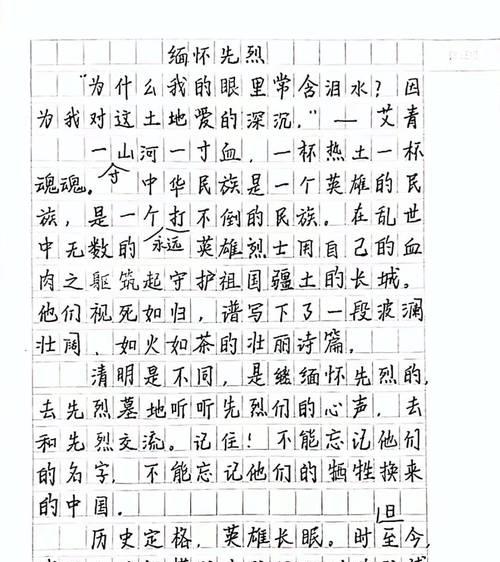 缅怀先烈
“为什么我的眼里常含泪水？因
为我对这土地爱的深沉。”— 艾青
一山河一寸血，一杯热土一杯
魂魂。中华民族是一个英雄的民
寸
族，是一个打不倒的民族。在乱世
中无数的英雄烈士用自己的血
永远
肉之躯筑起守护祖国疆土的长城。
他们视死如归，谱写下了一段波澜
壮阔、如火如荼的壮丽诗篇。
清明是不同，是缅怀先烈的，
去先烈墓地听听先烈们的心声，去
和先烈交流。记住！不能忘记他们
的名字，不能忘记他们的牺牲换来
的中国。
历史定格，英雄长眠。时至今
旦